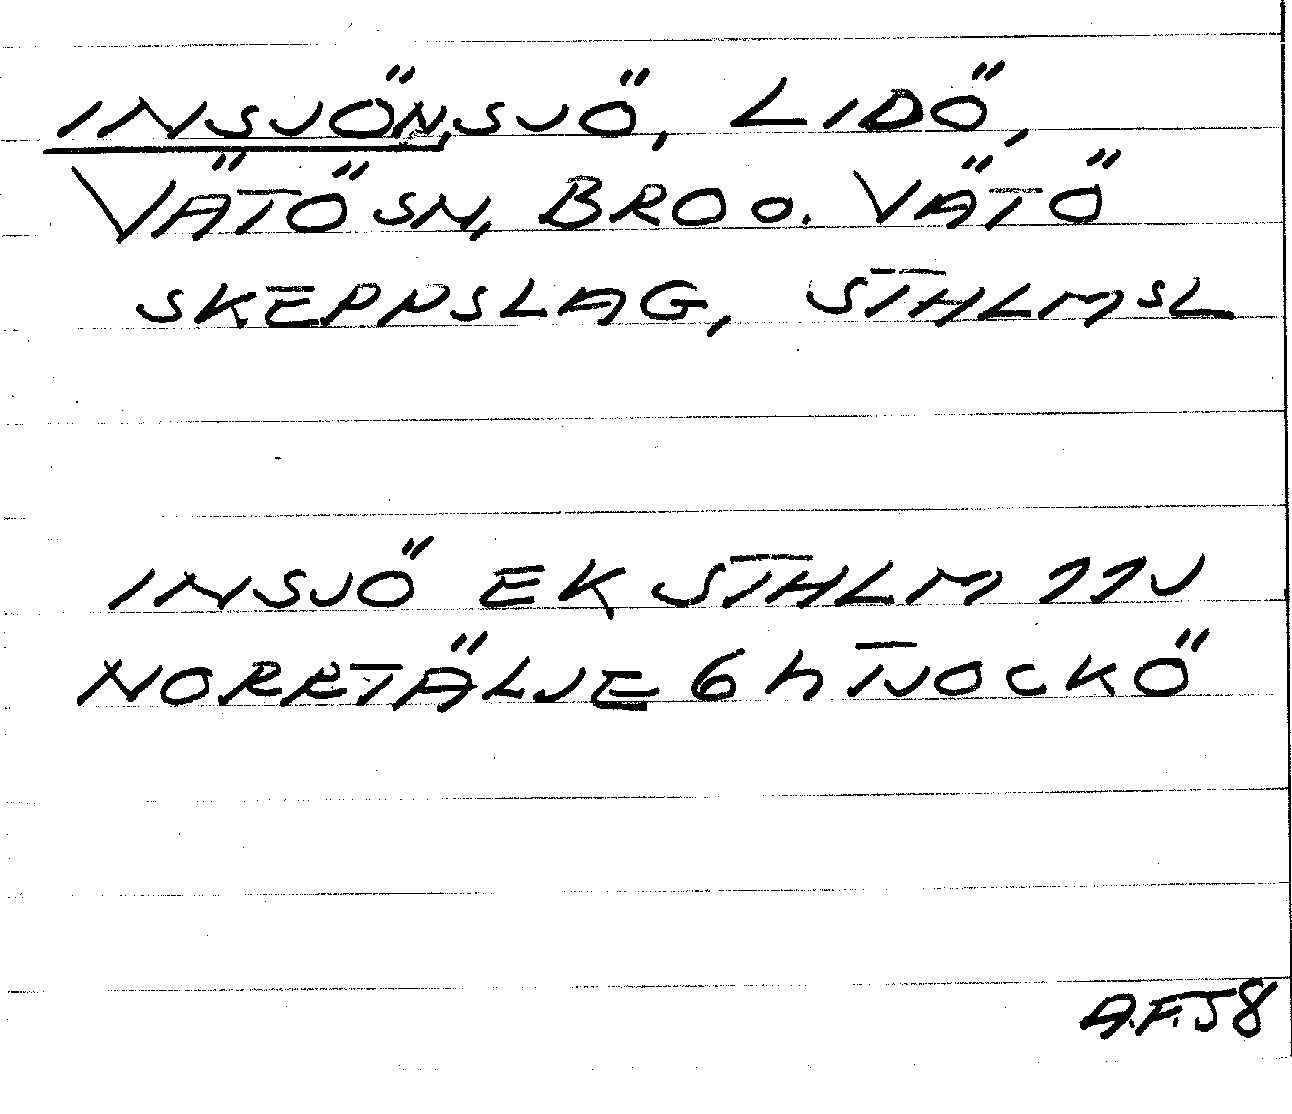 INSJÖN, SJÖ, LIDÖ,
VÄTÖ SN, BRO O. VÄTÖ
SKEPPSLAG, STHLMSL
INSJÖ EK STHLM 11J
NORRTÄLJE 6h TJOCKÖ
A.F. 58